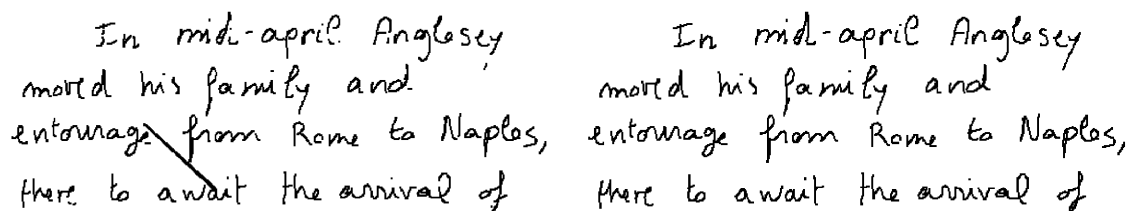 In mid-april Anglesey
moved his family and
entourage from Rome to Naples,
there to await the arrival of
In mid-april Anglesey
moved his family and
entourage from Rome to Naples,
there to await the arrival of